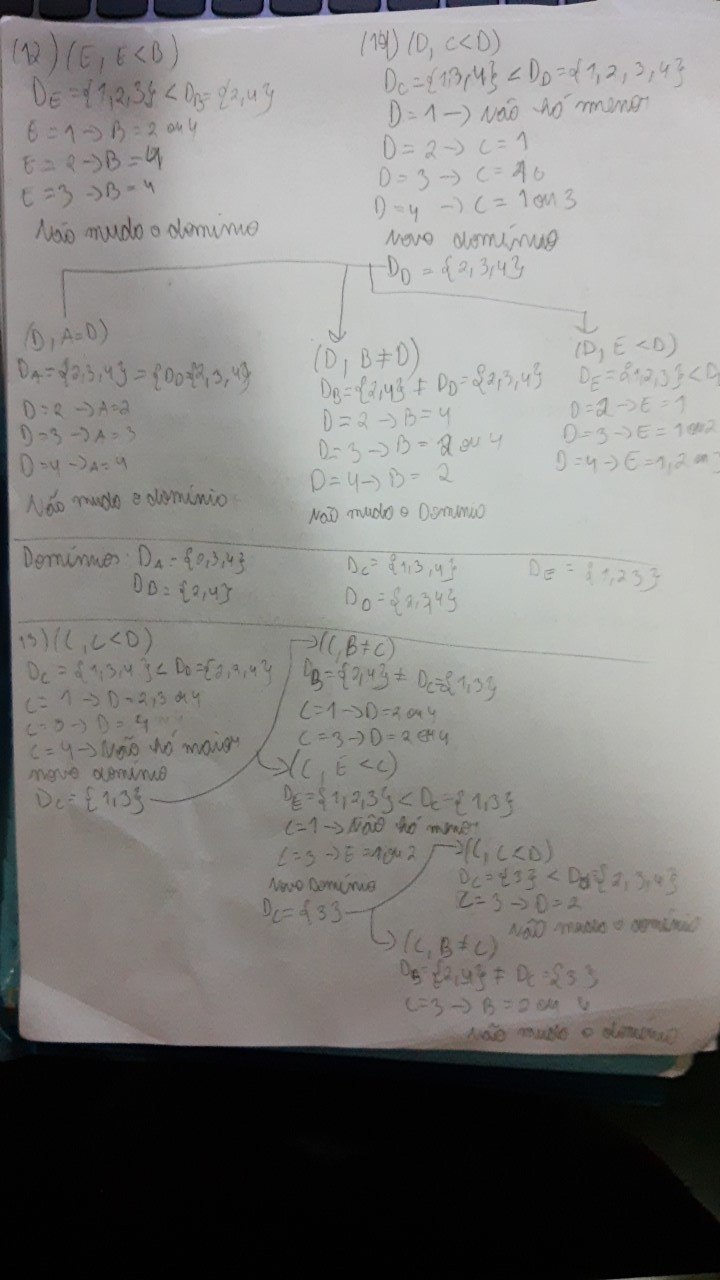 (12) (E, E<B)
D_E = {1,2,3} < D_B = {2,4}
E = 1 -> B = 2 ou 4
E = 2 -> B = 4
E = 3 -> B = 4
Não mudo o domínio
(D, C<D)
D_C = {1,3,4} < D_D = {1,2,3,4}
D = 1 -> Não há menor
D = 2 -> C = 1
D = 3 -> C = 1
D = 4 -> C = 1 ou 3
Novo domínio
D_D = {2,3,4}
(D, A=D)
D_A = {2,3,4} = {D_D {2,3,4}
D = 2 -> A = 2
D = 3 -> A = 3
D = 4 -> A = 4
Não mudo o domínio
(D, B≠D)
D_B = {2,4} ≠ D_D = {2,3,4}
D = 2 -> B = 4
D = 3 -> B = 2 ou 4
D = 4 -> B = 2
Não mudo o Domínio
(D, E<D)
D_E = {1,2,3} <
D = 2 -> E = 1
D = 3 -> E = 1 ou 2
D = 4 -> E = 1, 2
Domínios: D_A = {2,3,4}
D_B = {2,4}
D_C = {1,3,4}
D_D = {2,3,4}
D_E = {1,2,3}
13) (C, C<D)
D_C = {1,3,4} < D_D = {2,3,4}
C = 1 -> D = 2,3 ou 4
C = 3 -> D = 4
C = 4 -> Não há maior
novo domínio
D_C = {1,3}
(C, B≠C)
D_B = {2,4} ≠ D_C = {1,3}
C = 1 -> D = 2 ou 4
C = 3 -> D = 2 ou 4
(C, E<C)
D_E = {1,2,3} < D_C = {1,3}
C = 1 -> Não há menor
C = 3 -> E = 1 ou 2
Novo Domínio
D_C = {3}
(C, C<D)
D_C = {3} < D_D = {2,3,4}
C = 3 -> D = 2
Não mudo o domínio
(C, B≠C)
D_B = {2,4} ≠ D_C = {3}
C = 3 -> B = 2 ou 4
Não mudo o domínio